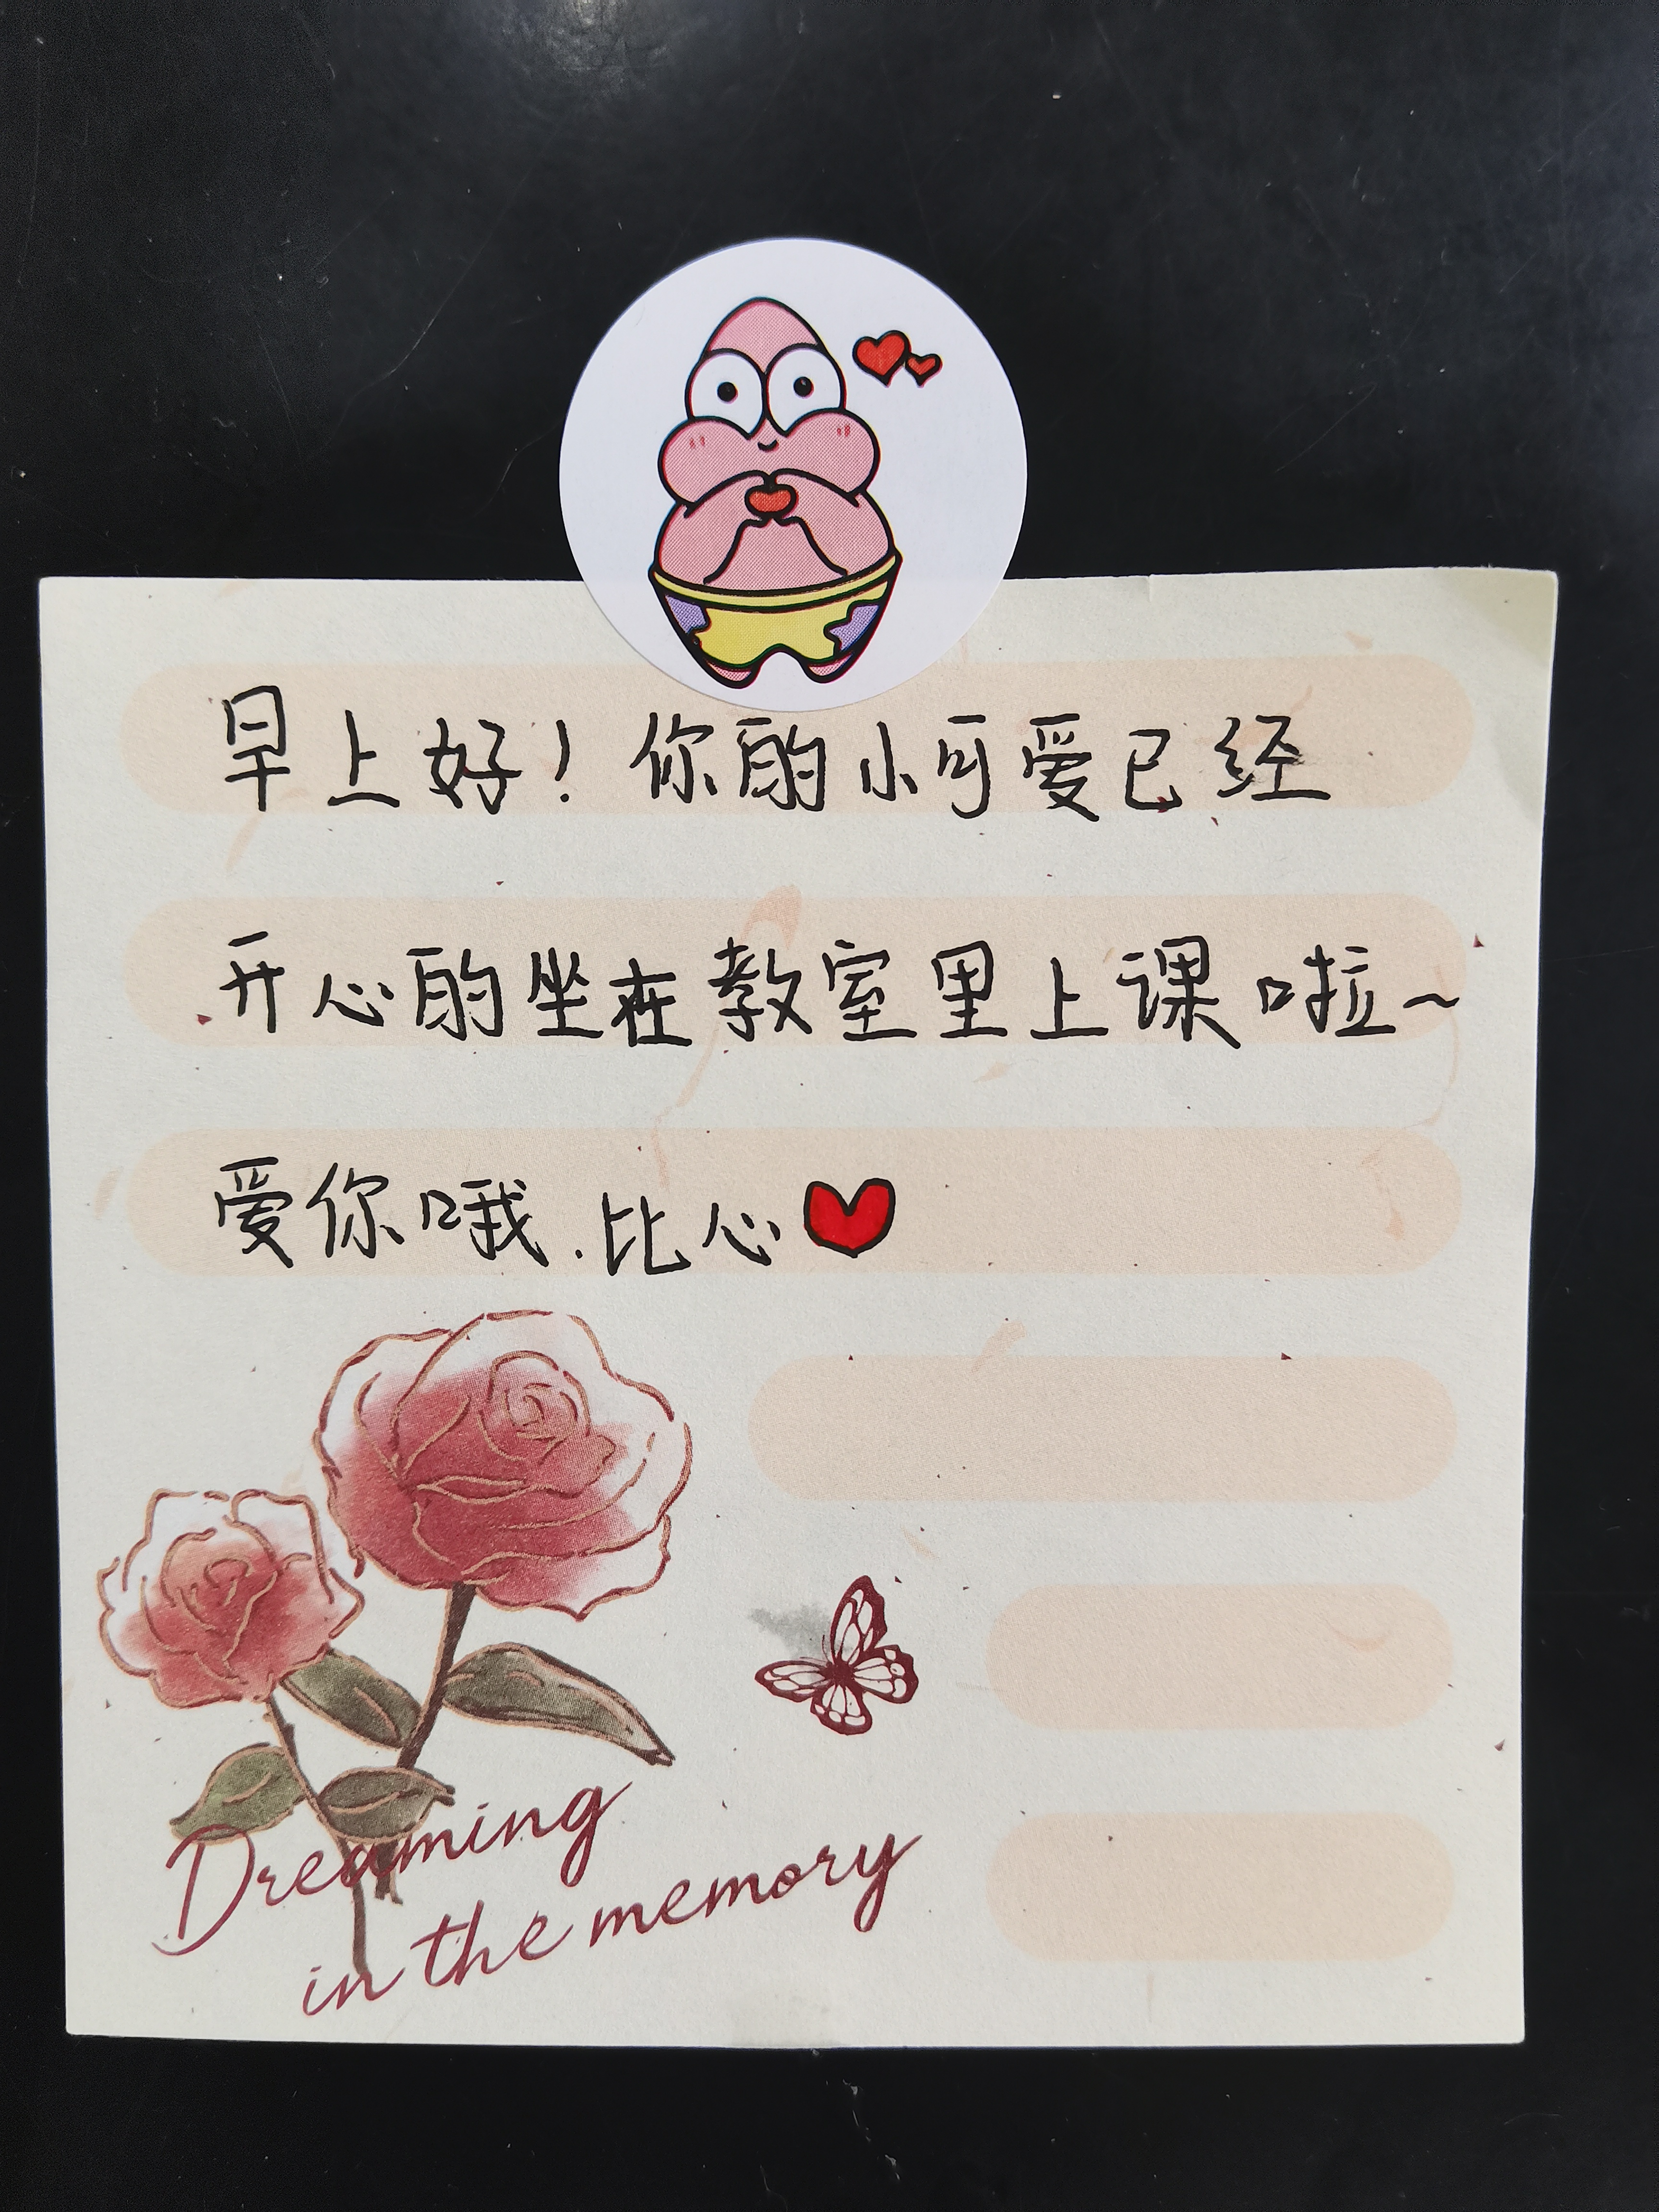 早上好！你的小可爱已经
开心的坐在教室里上课啦～
爱你哦.比心
Dreaming
in the memory